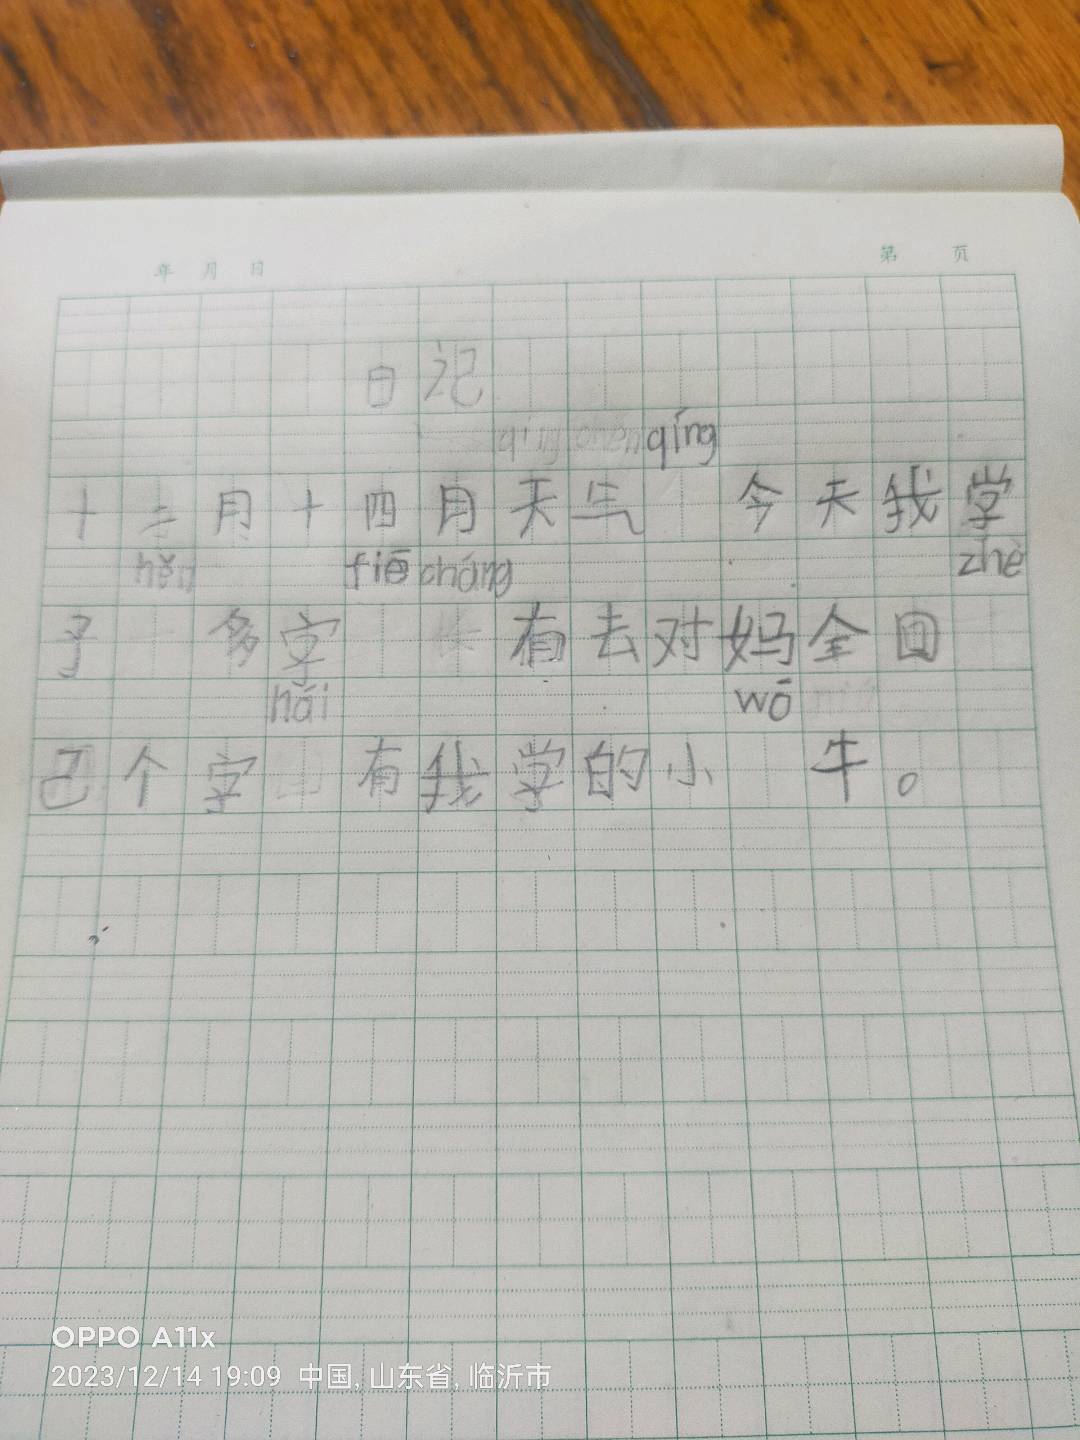 年 月 日 第 页
日记
qíng
十二月十四月天气 今天我学
hěn fiē cháng zhè
了 多字 有去对妈全回
hái wō
己个字 有我学的小 牛。
OPPO A11x
2023/12/14 19:09 中国, 山东省, 临沂市